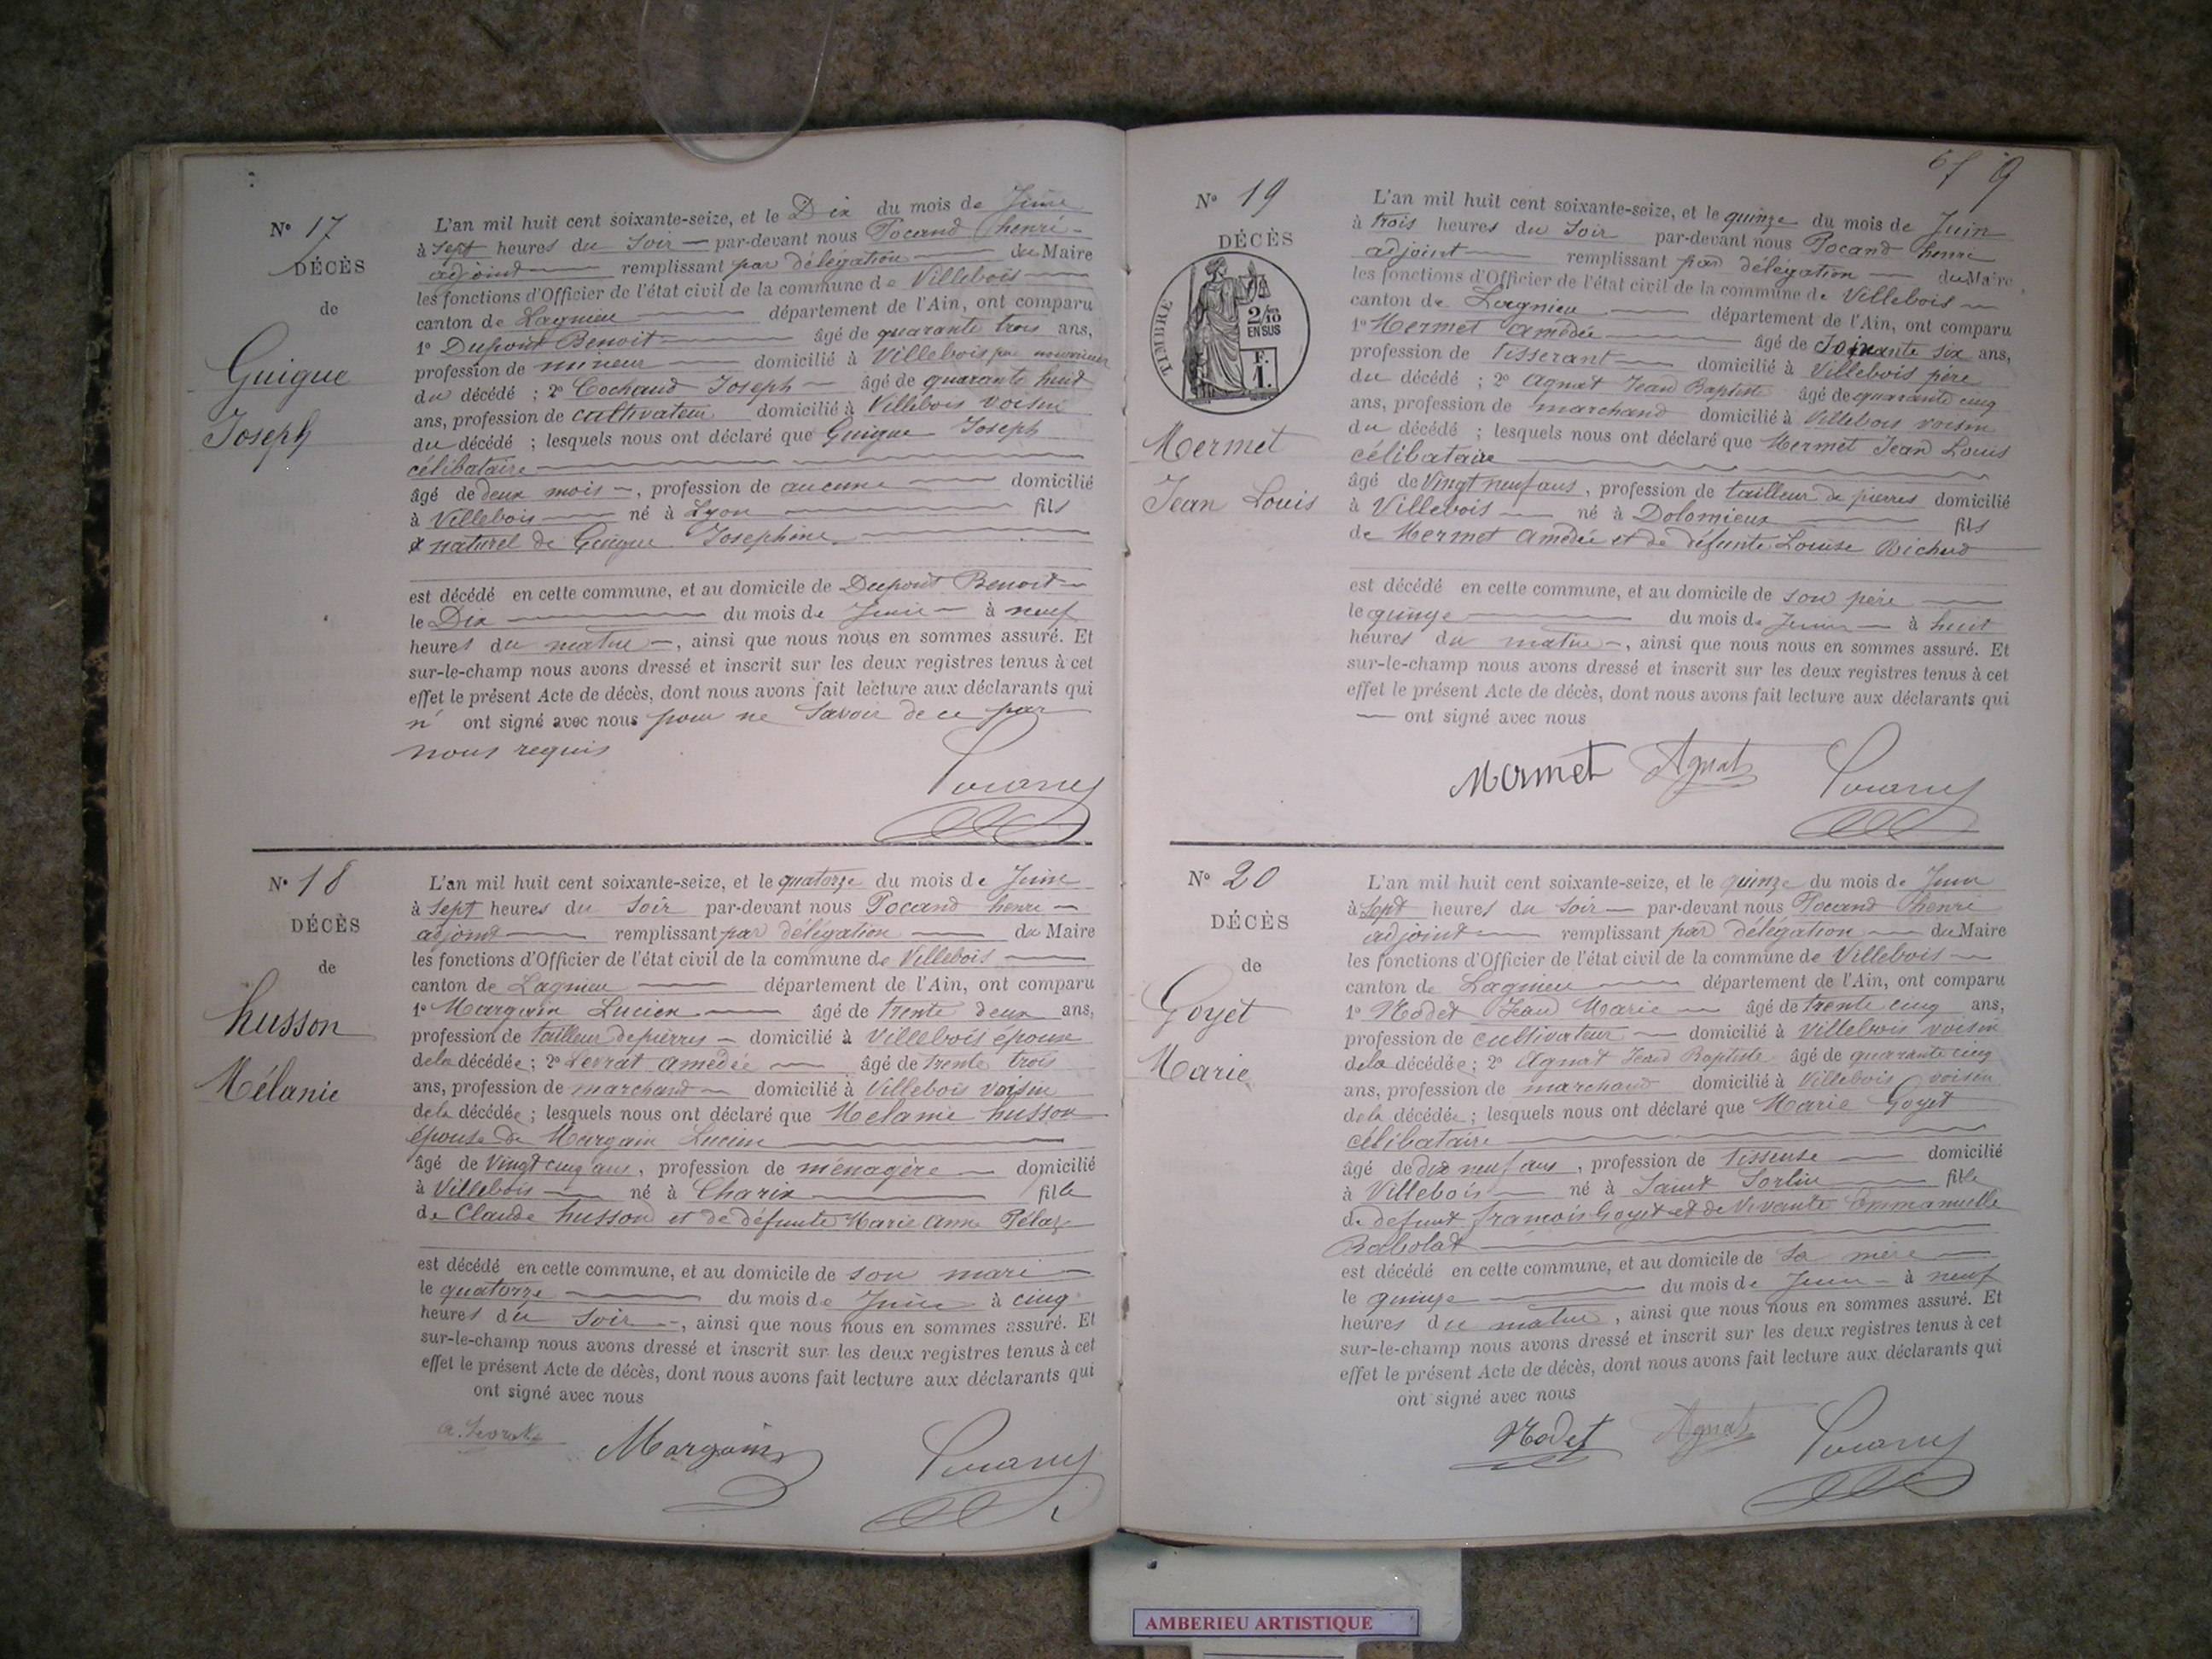 N° 17
DÉCÈS
de
Guigue
Joseph
L'an mil huit cent soixante-seize, et le Dix du mois de Juin
à Sept heures du Soir par-devant nous Pocand henri
adjoint remplissant par délégation du Maire
les fonctions d'Officier de l'état civil de la commune de Villebois
canton de Lagnieu département de l'Ain, ont comparu
1° Dupont Benoit âgé de quarante trois ans,
profession de mineur domicilié à Villebois père nourricier
du décédé ; 2° Cochaud Joseph âgé de quarante huit
ans, profession de cultivateur domicilié à Villebois voisin
du décédé ; lesquels nous ont déclaré que Guigue Joseph
célibataire
âgé de deux mois, profession de aucune domicilié
à Villebois né à Lyon fils
naturel de Guigue Josephine
est décédé en cette commune, et au domicile de Dupont Benoit
le Dix du mois de Juin à neuf
heures du matin, ainsi que nous nous en sommes assuré. Et
sur-le-champ nous avons dressé et inscrit sur les deux registres tenus à cet
effet le présent Acte de décès, dont nous avons fait lecture aux déclarants qui
n' ont signé avec nous pour ne Savoir de ce par
nous requis
N° 18
DÉCÈS
de
husson
Mélanie
L'an mil huit cent soixante-seize, et le quatorze du mois de Juin
à Sept heures du Soir par-devant nous Pocand henri
adjoint remplissant par délégation du Maire
les fonctions d'Officier de l'état civil de la commune de Villebois
canton de Lagnieu département de l'Ain, ont comparu
1° Margain Lucien âgé de trente deux ans,
profession de tailleur de pierres domicilié à Villebois époux
de la décédée ; 2° Levrat Amédée âgé de trente trois
ans, profession de marchand domicilié à Villebois voisin
de la décédée ; lesquels nous ont déclaré que Mélanie husson
épouse de Margain Lucien
âgé de Vingt cinq ans, profession de ménagère domicilié
à Villebois né à Charix fille
de Claude husson et de défunte Marie Anne
est décédé en cette commune, et au domicile de son mari
le quatorze du mois de Juin à cinq
heures du Soir, ainsi que nous nous en sommes assuré. Et
sur-le-champ nous avons dressé et inscrit sur les deux registres tenus à cet
effet le présent Acte de décès, dont nous avons fait lecture aux déclarants qui
ont signé avec nous
Margain
67 9
N° 19
DÉCÈS
TIMBRE
2/10
EN SUS
F.
1.
Mermet
Jean Louis
L'an mil huit cent soixante-seize, et le quinze du mois de Juin
à trois heures du Soir par-devant nous Pocand henri
adjoint remplissant par délégation du Maire
les fonctions d'Officier de l'état civil de la commune de Villebois
canton de Lagnieu département de l'Ain, ont comparu
1° Mermet Amédée âgé de Soixante six ans,
profession de tisserant domicilié à Villebois père
du décédé ; 2° Agnat Jean Baptiste âgé de quarante cinq
ans, profession de marchand domicilié à Villebois voisin
du décédé ; lesquels nous ont déclaré que Mermet Jean Louis
célibataire
âgé de Vingt neuf ans, profession de tailleur de pierres domicilié
à Villebois né à Dolomieux fils
de Mermet Amédée et de défunte Louise Richard
est décédé en cette commune, et au domicile de son père
le quinze du mois de Juin à huit
heures du matin, ainsi que nous nous en sommes assuré. Et
sur-le-champ nous avons dressé et inscrit sur les deux registres tenus à cet
effet le présent Acte de décès, dont nous avons fait lecture aux déclarants qui
ont signé avec nous
Mermet Agnat
N° 20
DÉCÈS
de
Goyet
Marie
L'an mil huit cent soixante-seize, et le quinze du mois de Juin
à Sept heures du Soir par-devant nous Pocand henri
adjoint remplissant par délégation du Maire
les fonctions d'Officier de l'état civil de la commune de Villebois
canton de Lagnieu département de l'Ain, ont comparu
1° Nodet Jean Marie âgé de trente cinq ans,
profession de cultivateur domicilié à Villebois voisin
de la décédée ; 2° Agnat Jean Baptiste âgé de quarante cinq
ans, profession de marchand domicilié à Villebois voisin
de la décédée ; lesquels nous ont déclaré que Marie Goyet
célibataire
âgé de dix neuf ans, profession de tisseuse domicilié
à Villebois né à Saint Sorlin fille
de défunt françois Goyet et de Vivante Emmanuelle
est décédé en cette commune, et au domicile de Sa mère
le quinze du mois de Juin à neuf
heures du matin, ainsi que nous nous en sommes assuré. Et
sur-le-champ nous avons dressé et inscrit sur les deux registres tenus à cet
effet le présent Acte de décès, dont nous avons fait lecture aux déclarants qui
ont signé avec nous
Nodet Agnat
AMBERIEU ARTISTIQUE